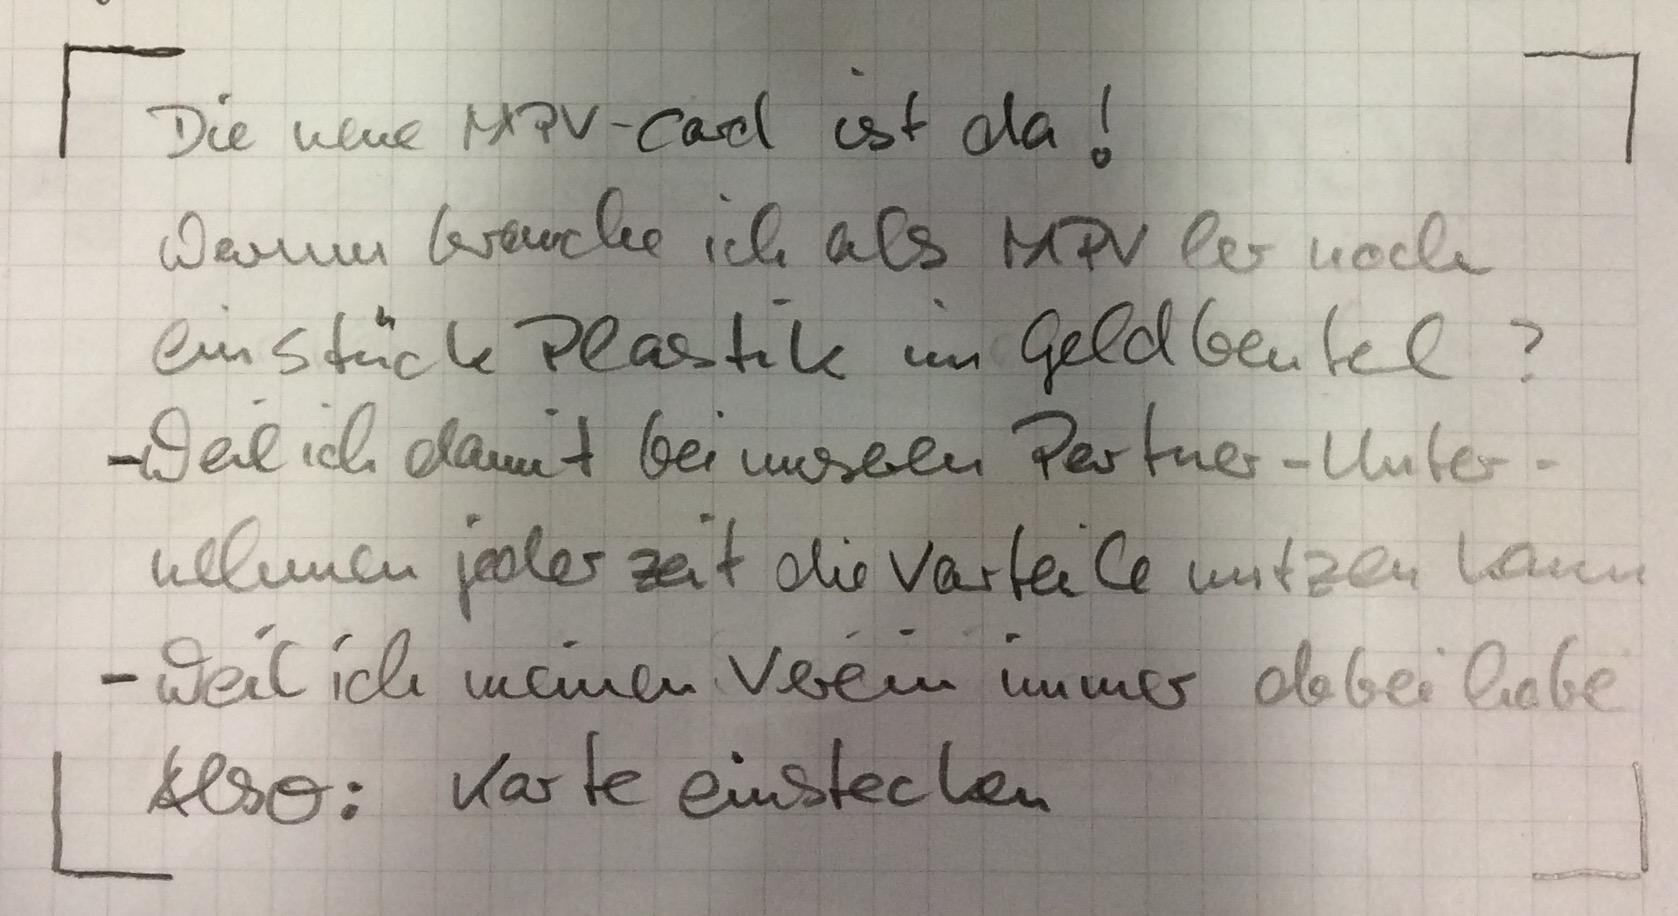 Die neue MPV-Card ist da!
Warum brauche ich als MPV ler noch
ein Stück Plastik im Geldbeutel?
- Weil ich damit bei unseren Partner-Unter-
nehmen jederzeit die Vorteile nutzen kann
- Weil ich meinen Verein immer dabei habe
Also: Karte einstecken